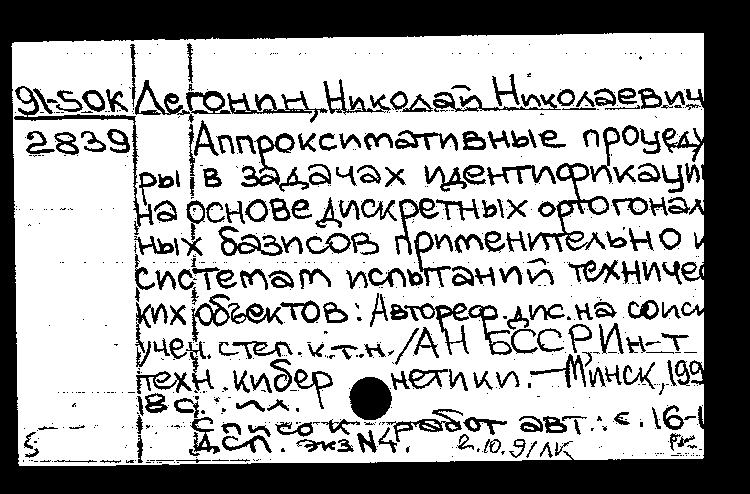 91-50К Дегонин, Николай Николаевич
2839 Аппроксимативные процеду
ры в задачах идентификации
на основе дискретных ортогонал
ных базисов применительно к
системам испытаний техничес
ких объектов: Автореф. дис. на соиск
учен. степ. к.т.н. / АН БССР, Ин-т
техн. кибернетики. — Минск, 199
18 с.: ил.
Список работ авт.: с. 16-1
ДСП. экз N4. 2.10.91 ЛК